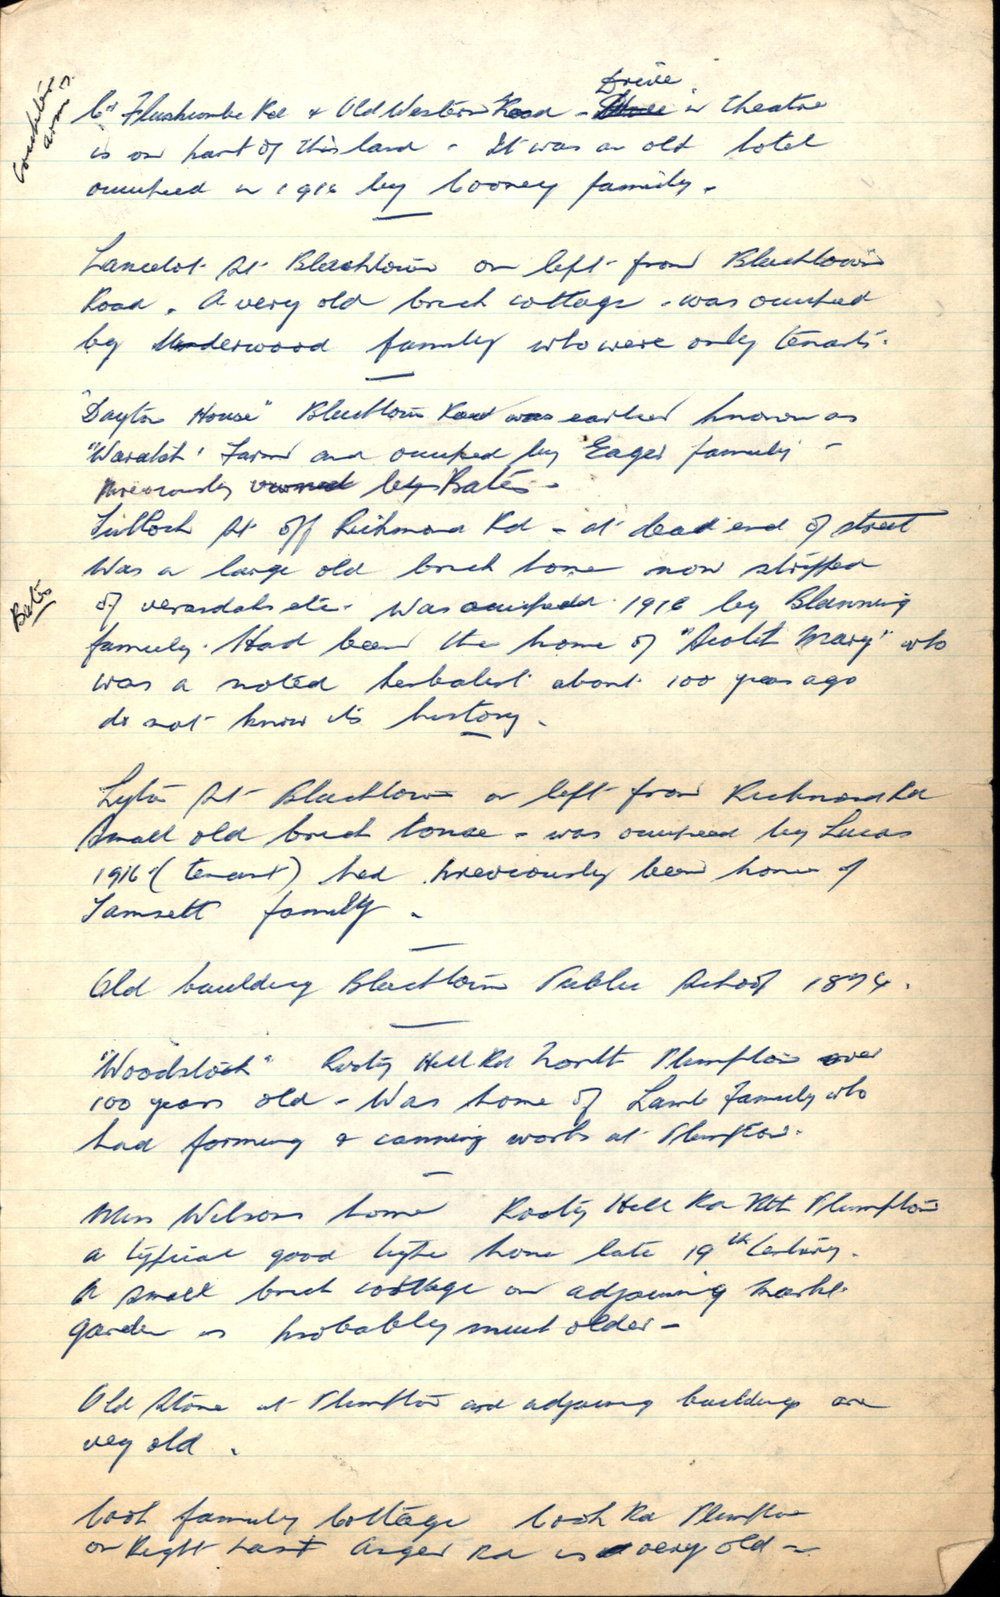 Coachites Arms ?
Cr Flushcombe Rd & Old Western Road - Drive in theatre
is on part of this land - It was an old hotel
occupied in 1916 by Cooney family.
Lancelot St Blacktown on left from Blacktown
Road. A very old brick cottage - was occupied
by Underwood family who were only tenants.
"Dayton House" Blacktown Road was earlier known as
"Waratah" Farm and occupied by Eager family -
previously owned by Bates -
Tulloch St off Richmond Rd - at dead end of street
Was a large old brick home now stripped
Bates
of verandahs etc. Was occupied 1916 by Blanning
family. Had been the home of "Scotch Mary" who
was a noted herbalist about 100 years ago
do not know its history.
Lyton St Blacktown on left from Richmond Rd
Small old brick house - was occupied by Lucas
1916 (tenant) had previously been home of
Tamsett family.
Old building Blacktown Public School 1874.
"Woodstock" Rooty Hill Rd North Plumpton over
100 years old - Was home of Lamb family who
had farming & canning works at Plumpton.
Miss Wilsons home Rooty Hill Rd Nth Plumpton
a typical good type home late 19th Century.
A small brick cottage on adjoining market
garden is probably much older -
Old Store at Plumpton and adjoining buildings are
very old.
Cook family Cottage Cook Rd Plumpton
on Right Rd is very old -